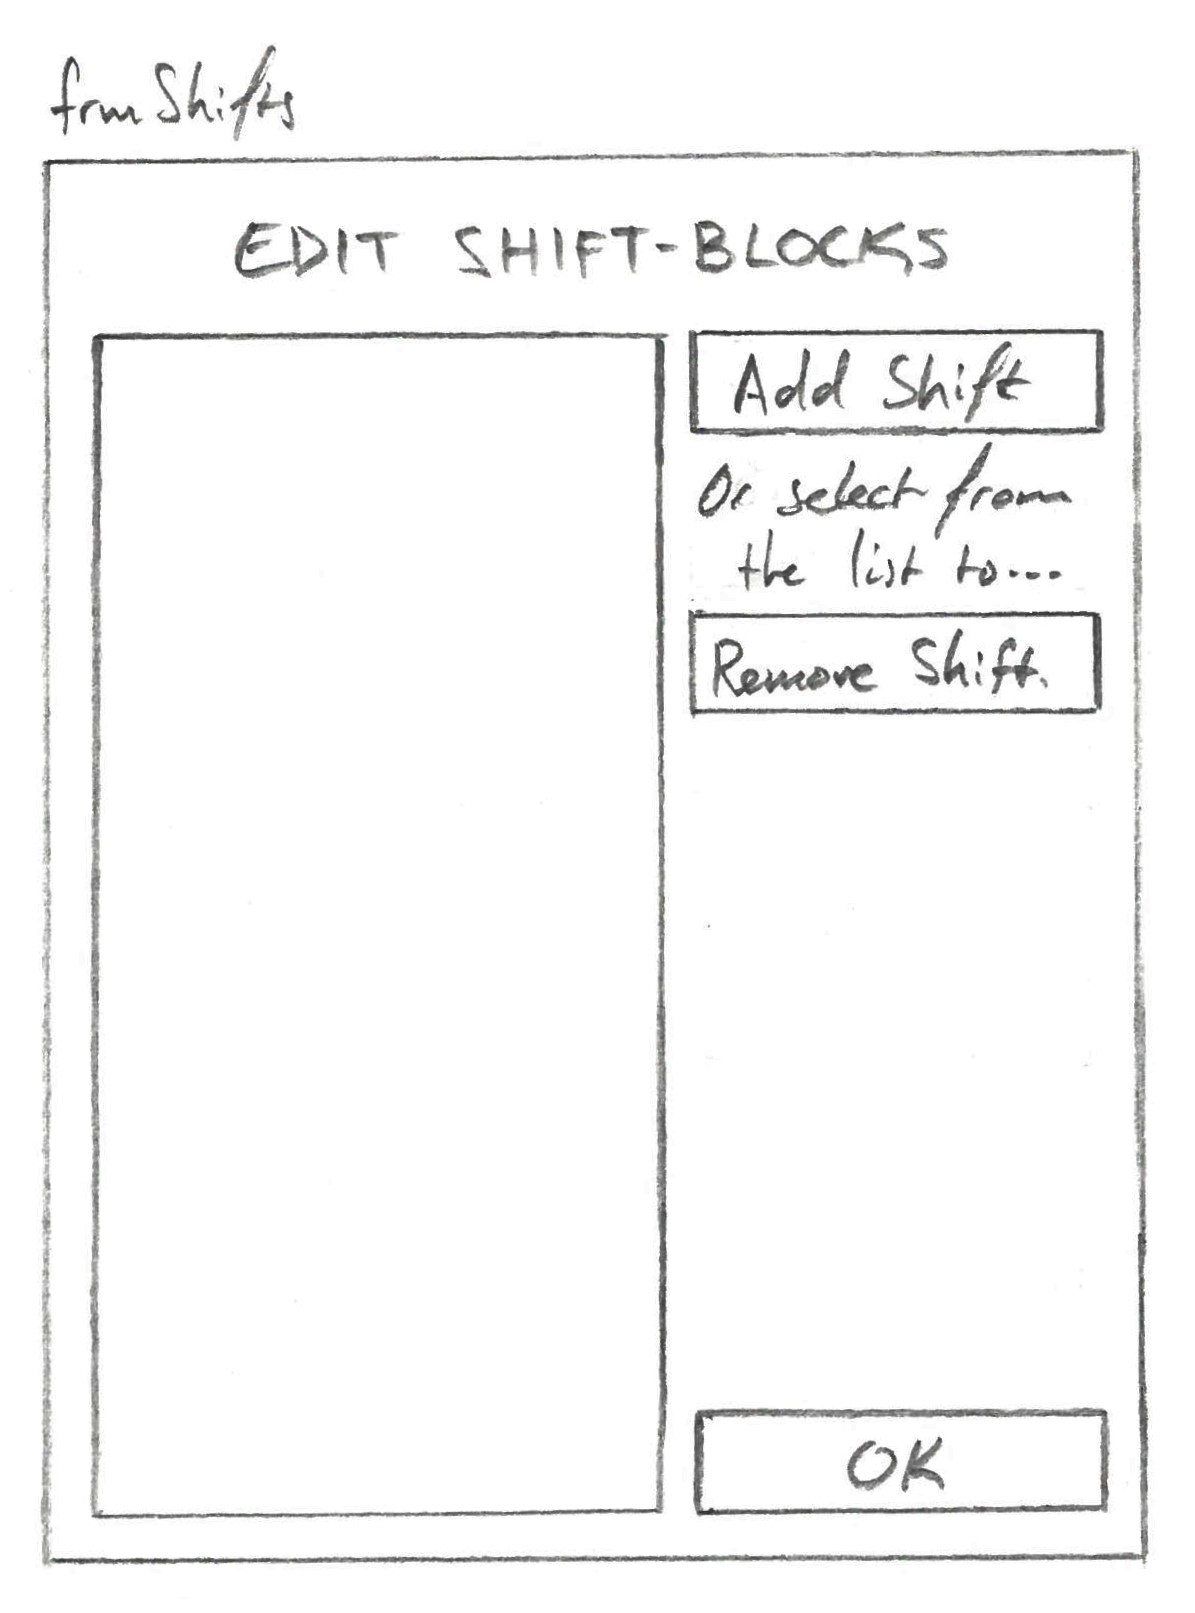 frmShifts
EDIT SHIFT-BLOCKS
Add Shift
Or select from
the list to...
Remove Shift.
OK